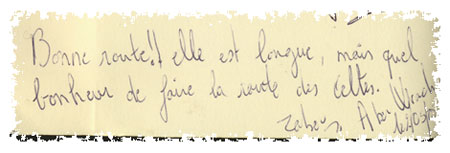 Bonne route!! elle est longue, mais quel
bonheur de faire la route des Celtes.
Aber Wrach